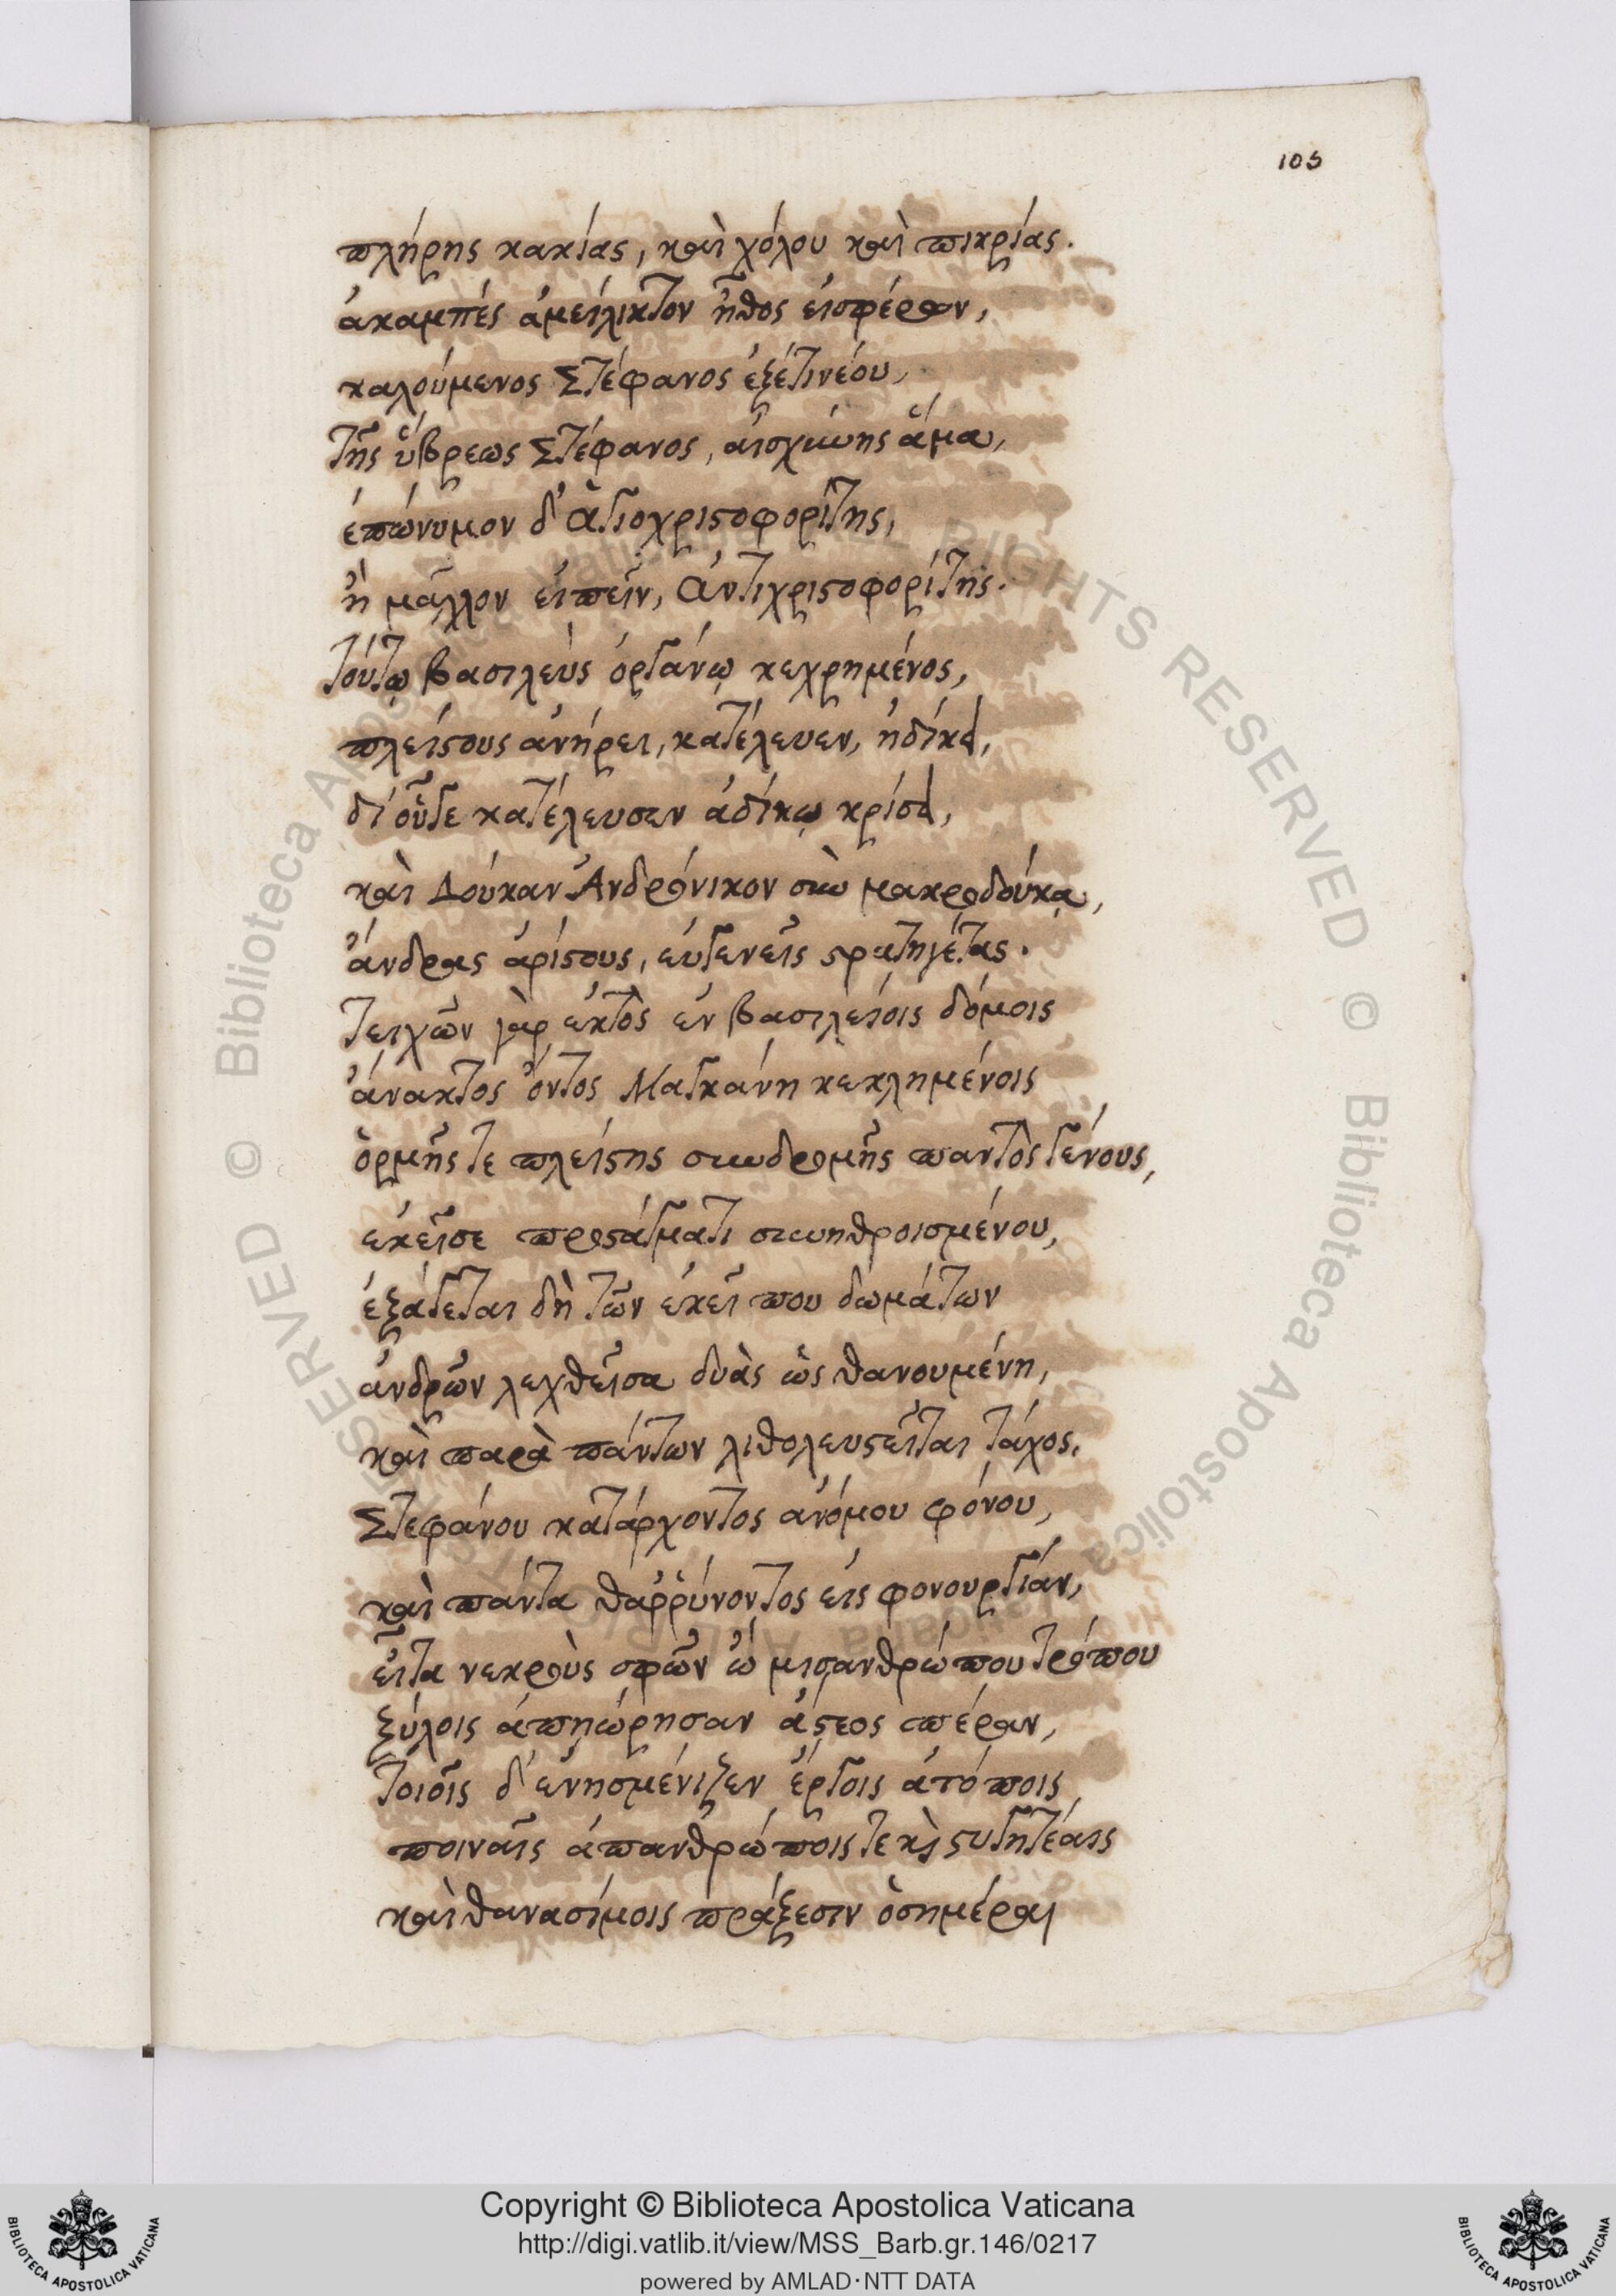 105
πλήρης κακίας, καὶ χόλου καὶ πικρίας.
ἀκαμπὲς ἀμείλικτον ἦθος εἰσφέρων,
καλούμενος Στέφανος ἐξέτι νέου,
τῆς ὕβρεως Στέφανος, αἰσχύνης ἅμα,
ἐπώνυμον δ' Ἁγιοχριστοφορίτης,
ἢ μᾶλλον εἰπεῖν, Ἀντιχριστοφορίτης.
τούτῳ βασιλεὺς ὀργάνῳ κεχρημένος,
πλείστους ἀνήρει, κατέλευεν, ἠδίκει,
δι' οὗγε κατέλευσεν ἀδίκῳ κρίσει,
καὶ Δούκαν Ἀνδρόνικον σὺν μακροδούκᾳ,
ἄνδρας ἀρίστους, εὐγενεῖς στρατηγέτας.
τειχῶν γὰρ ἐκτὸς ἐν βασιλείοις δόμοις
ἄνακτος ὄντος Μαγκάνη κεκλημένοις
ὁρμῆς τε πλείστης συνδρομῆς παντὸς γένους,
ἐκεῖσε προστάγματι συνηθροισμένου,
ἐξάγεται δὴ τῶν ἐκεῖ που δωμάτων
ἀνδρῶν λεχθεῖσα δυὰς ὡς θανουμένη,
καὶ παρὰ πάντων λιθολευστεῖται τάχος,
Στεφάνου κατάρχοντος ἀνόμου φόνου,
καὶ πάντα θαῤῥύνοντος εἰς φονουργίαν,
εἶτα νεκροὺς σφῶν ὢ μισανθρώπου τρόπου
ξύλοις ἀπῃώρησαν ἄστεος πέραν,
τοιοῖς δ' ἐνησμένιζεν ἔργοις ἀτόποις
ποιναῖς ἀπανθρώποις τε κỳ στυγητέαις
καὶ θανασίμοις πράξεσιν ὁσημέραι
Copyright © Biblioteca Apostolica Vaticana
http://digi.vatlib.it/view/MSS_Barb.gr.146/0217
powered by AMLAD·NTT DATA
BIBLIOTECA APOSTOLICA VATICANA
BIBLIOTECA APOSTOLICA VATICANA